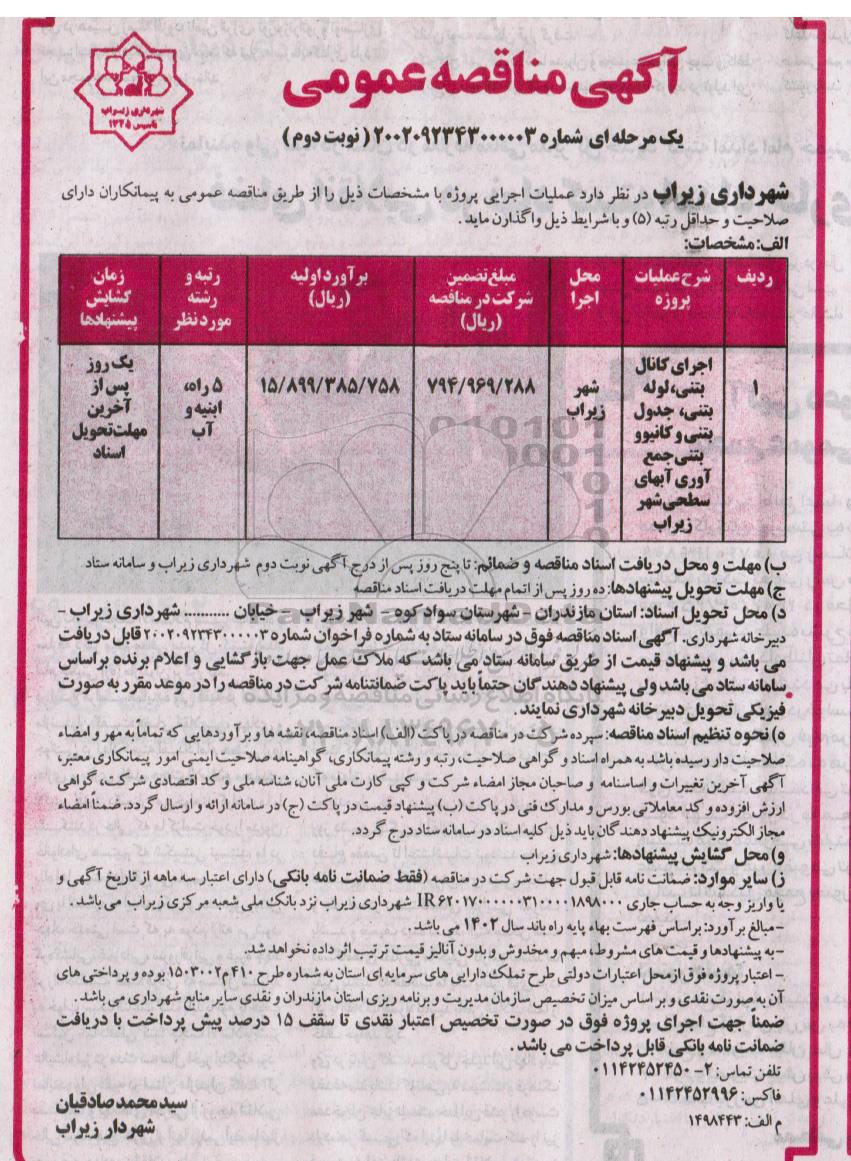 آگهی مناقصه عمومی
شهرداری زیراب
تاسیس ۱۳۲۵
یک مرحله ای شماره ۲۰۰۲۰۹۲۳۴۳۰۰۰۰۰۳ (نوبت دوم)
شهرداری زیراب در نظر دارد عملیات اجرایی پروژه با مشخصات ذیل را از طریق مناقصه عمومی به پیمانکاران دارای
صلاحیت و حداقل رتبه (۵) و با شرایط ذیل واگذارن ماید.
الف: مشخصات:
ردیف
شرح عملیات پروژه
محل اجرا
مبلغ تضمین شرکت در مناقصه (ریال)
برآورد اولیه (ریال)
رتبه و رشته مورد نظر
زمان گشایش پیشنهادها
۱
اجرای کانال
بتنی، لوله
بتنی، جدول
بتنی و کانیوو
بتنی جمع
آوری آبهای
سطحی شهر
زیراب
شهر
زیراب
۷۹۴/۹۶۹/۲۸۸
۱۵/۸۹۹/۳۸۵/۷۵۸
۵ راه،
ابنیه و
آب
یک روز
پس از
آخرین
مهلت تحویل
اسناد
ب) مهلت و محل دریافت اسناد مناقصه و ضمائم: تا پنج روز پس از درج آگهی نوبت دوم شهرداری زیراب و سامانه ستاد
ج) مهلت تحویل پیشنهادها: ده روز پس از اتمام مهلت دریافت اسناد مناقصه
د) محل تحویل اسناد: استان مازندران - شهرستان سوادکوه – شهر زیراب – خیابان .......... شهرداری زیراب –
دبیرخانه شهرداری. آگهی اسناد مناقصه فوق در سامانه ستاد به شماره فراخوان شماره ۲۰۰۲۰۹۲۳۴۳۰۰۰۰۰۳ قابل دریافت
می باشد و پیشنهاد قیمت از طریق سامانه ستاد می باشد که ملاک عمل جهت بازگشایی و اعلام برنده براساس
سامانه ستاد می باشد ولی پیشنهاد دهندگان حتماً باید پاکت ضمانتنامه شرکت در مناقصه را در موعد مقرر به صورت
فیزیکی تحویل دبیرخانه شهرداری نمایند.
ه) نحوه تنظیم اسناد مناقصه: سپرده شرکت در مناقصه در پاکت (الف) اسناد مناقصه، نقشه ها و برآوردهایی که تماماً به مهر و امضاء
صلاحیت دار رسیده باشد به همراه اسناد و گواهی صلاحیت، رتبه و رشته پیمانکاری، گواهینامه صلاحیت ایمنی امور پیمانکاری معتبر،
آگهی آخرین تغییرات و اساسنامه و صاحبان مجاز امضاء شرکت و کپی کارت ملی آنان، شناسه ملی و کد اقتصادی شرکت، گواهی
ارزش افزوده و کد معاملاتی بورس و مدارک فنی در پاکت (ب) پیشنهاد قیمت در پاکت (ج) در سامانه ارائه و ارسال گردد. ضمناً امضاء
مجاز الکترونیک پیشنهاد دهندگان باید ذیل کلیه اسناد در سامانه ستاد درج گردد.
و) محل گشایش پیشنهادها: شهرداری زیراب
ز) سایر موارد: ضمانت نامه قابل قبول جهت شرکت در مناقصه (فقط ضمانت نامه بانکی) دارای اعتبار سه ماهه از تاریخ آگهی و
یا واریز وجه به حساب جاری IR۶۲۰۱۷۰۰۰۰۰۰۳۱۰۰۰۰۱۸۹۸۰۰۰ شهرداری زیراب نزد بانک ملی شعبه مرکزی زیراب می باشد.
– مبالغ برآورد: براساس فهرست بهاء پایه راه باند سال ۱۴۰۲ می باشد.
– به پیشنهادها و قیمت های مشروط، مبهم و مخدوش و بدون آنالیز قیمت ترتیب اثر داده نخواهد شد.
– اعتبار پروژه فوق از محل اعتبارات دولتی طرح تملک دارایی های سرمایه ای استان به شماره طرح ۴۱۰م۱۵۰۳۰۰۲ بوده و پرداختی های
آن به صورت نقدی و بر اساس میزان تخصیص سازمان مدیریت و برنامه ریزی استان مازندران و نقدی سایر منابع شهرداری می باشد.
ضمناً جهت اجرای پروژه فوق در صورت تخصیص اعتبار نقدی تا سقف ۱۵ درصد پیش پرداخت با دریافت
ضمانت نامه بانکی قابل پرداخت می باشد.
تلفن تماس: ۲- ۰۱۱۴۲۴۵۲۴۵۰
فاکس: ۰۱۱۴۲۴۵۲۹۹۶
م الف: ۱۴۹۸۴۴۳
سید محمد صادقیان
شهردار زیراب